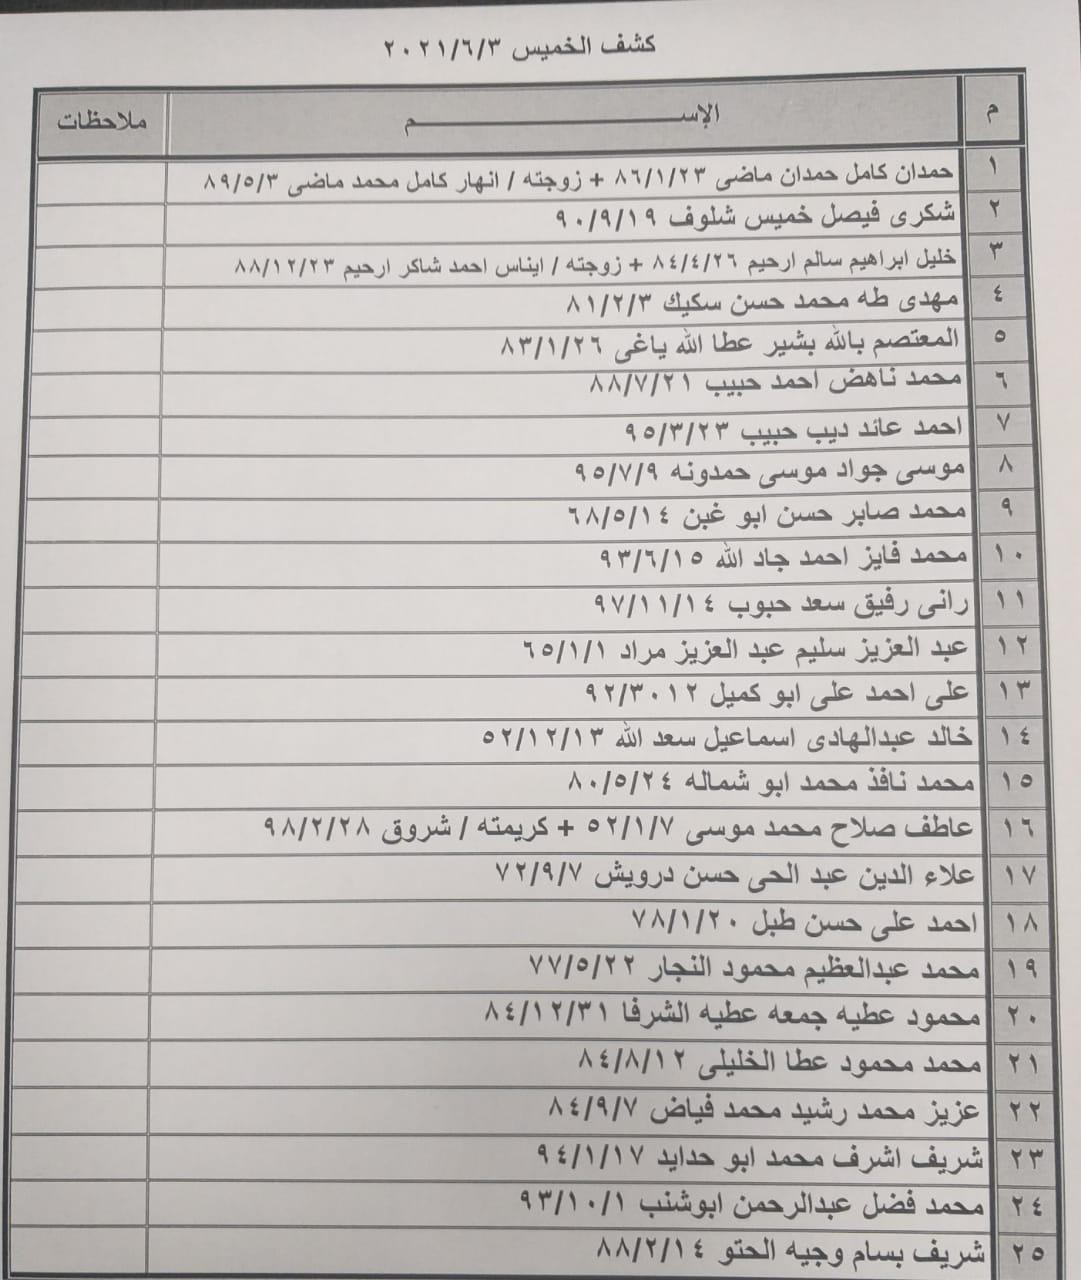 كشف الخميس ٢٠٢١/٦/٣
م الإســـــم ملاحظات
١ حمدان كامل حمدان ماضى ٨٦/١/٢٣ + زوجته / انهار كامل محمد ماضى ٨٩/٥/٣
٢ شكرى فيصل خميس شلوف ٩٠/٩/١٩
٣ خليل ابراهيم سالم ارحيم ٨٤/٤/٢٦ + زوجته / ايناس احمد شاكر ارحيم ٨٨/١٢/٢٣
٤ مهدى طه محمد حسن سكيك ٨١/٢/٣
٥ المعتصم بالله بشير عطا الله ياغى ٨٣/١/٢٦
٦ محمد ناهض احمد حبيب ٨٨/٧/٢١
٧ احمد عائد ديب حبيب ٩٥/٣/٢٣
٨ موسى جواد موسى حمدونه ٩٥/٧/٩
٩ محمد صابر حسن ابو غبن ٦٨/٥/١٤
١٠ محمد فايز احمد جاد الله ٩٣/٦/١٥
١١ رانى رفيق سعد حبوب ٩٧/١١/١٤
١٢ عبد العزيز سليم عبد العزيز مراد ٦٥/١/١
١٣ على احمد على ابو كميل ٩٢/٣٠١٢
١٤ خالد عبدالهادى اسماعيل سعد الله ٥٢/١٢/١٣
١٥ محمد نافذ محمد ابو شماله ٨٠/٥/٢٤
١٦ عاطف صلاح محمد موسى ٥٢/١/٧ + كريمته / شروق ٩٨/٢/٢٨
١٧ علاء الدين عبد الحى حسن درويش ٧٢/٩/٧
١٨ احمد على حسن طبل ٧٨/١/٢٠
١٩ محمد عبدالعظيم محمود النجار ٧٧/٥/٢٢
٢٠ محمود عطيه جمعه عطيه الشرفا ٨٤/١٢/٣١
٢١ محمد محمود عطا الخليلى ٨٤/٨/١٢
٢٢ عزيز محمد رشيد محمد فياض ٨٤/٩/٧
٢٣ شريف اشرف محمد ابو حدايد ٩٤/١/١٧
٢٤ محمد فضل عبدالرحمن ابوشنب ٩٣/١٠/١
٢٥ شريف بسام وجيه الحتو ٨٨/٢/١٤